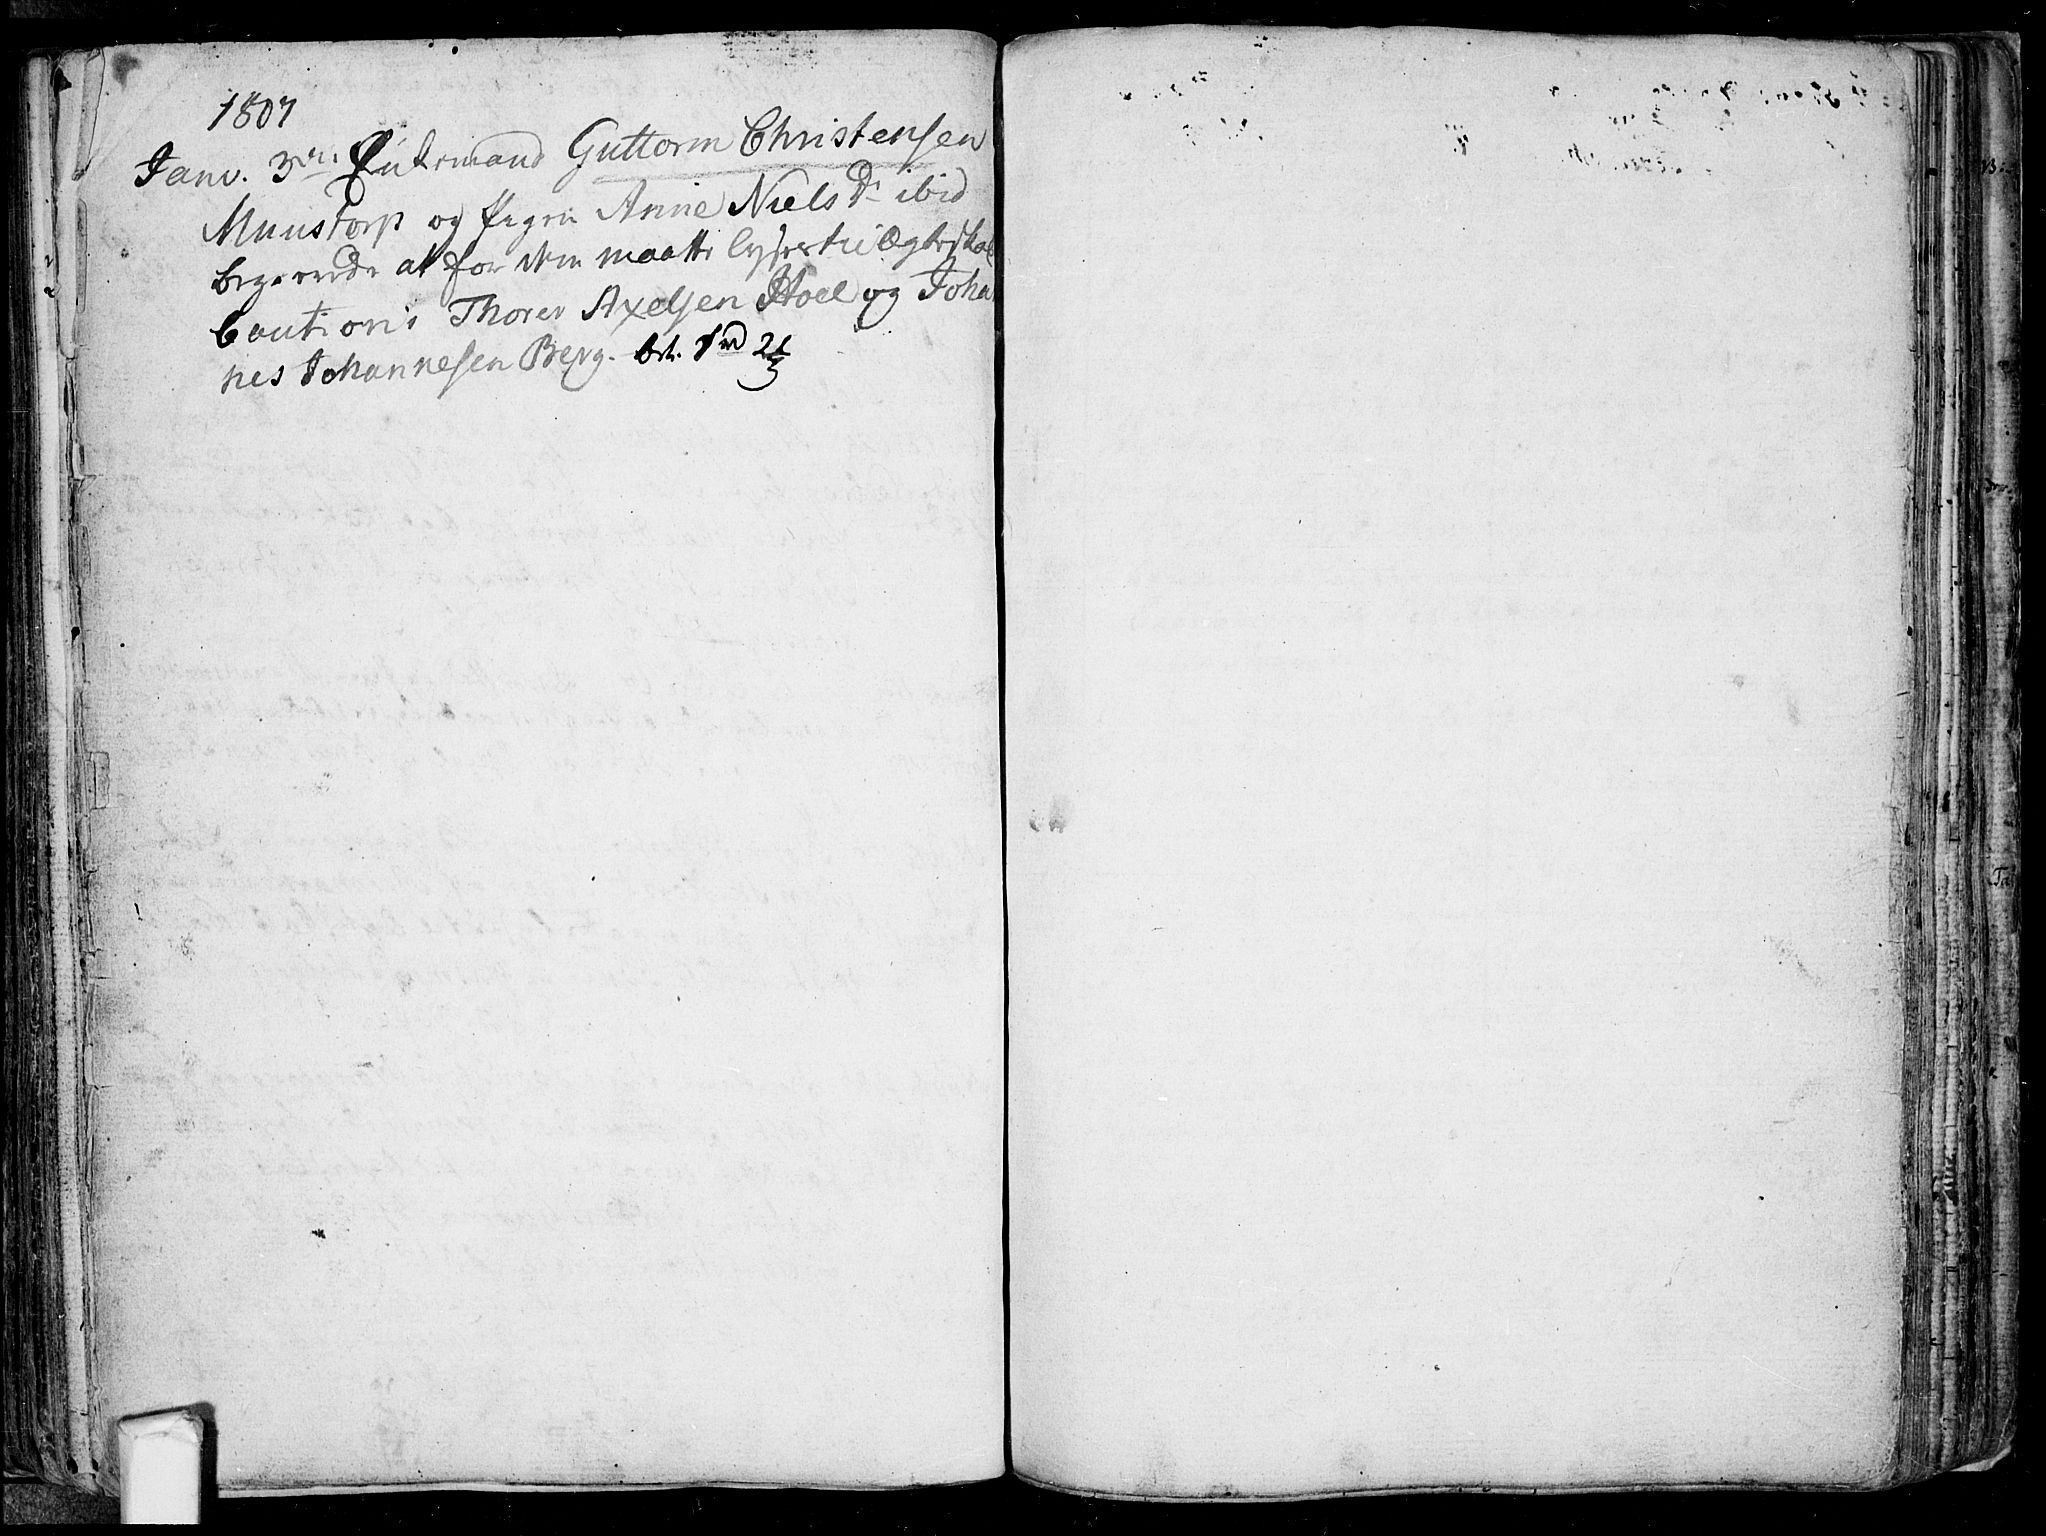 1807
Janv. 3die Enkemand Guttorm Christensen
Muustorp og Pigen Anne Niels Dr ibid
begierede at for dem maatte lyses til Ægteskab
Cautioni Thorer Axelsen Hoel og Johan
nes Johannesen Berg. bet. 1rd